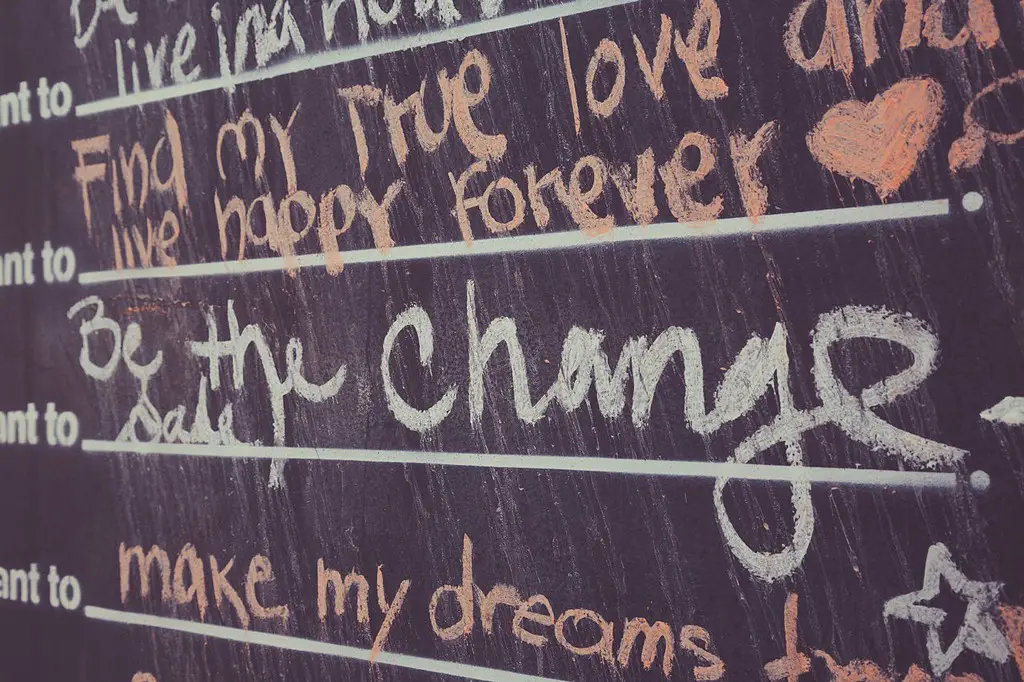 live in a
nt to
Find my True love and
live happy forever
nt to
Be the Change
nt to
make my dreams
nt to